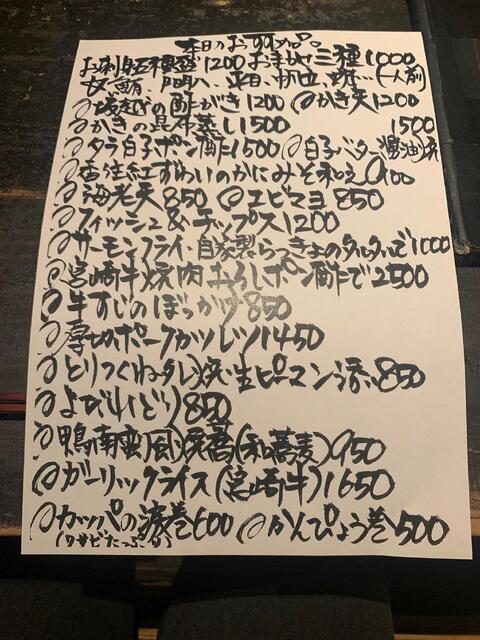 本日のおすすめ品
お刺身五種盛1200 お刺身三種1000
(一人前)
@坂越の酢がき1200 @かき天1200
@かきの昆布蒸し1500
@タラ白子ポン酢1500 @白子バター醤油焼 1500
@香住紅ずわいのかにみそ和え900
@海老天850 @エビマヨ850
@フィッシュ&チップス1200
@サーモンフライ・自家製らっきょのタルタルで1000
@宮崎牛焼肉おろしポン酢で2500
@牛すじのぼっかけ850
@厚切ポークカツレツ1450
@とりつくね(タレ)焼・生ピーマン添い850
@よだれどり850
@鴨南蛮風焼蕎(和蕎麦)950
@ガーリックライス(宮崎牛)1650
@カッパの涙巻600 @かんぴょう巻500
(ワサビたっぷり)